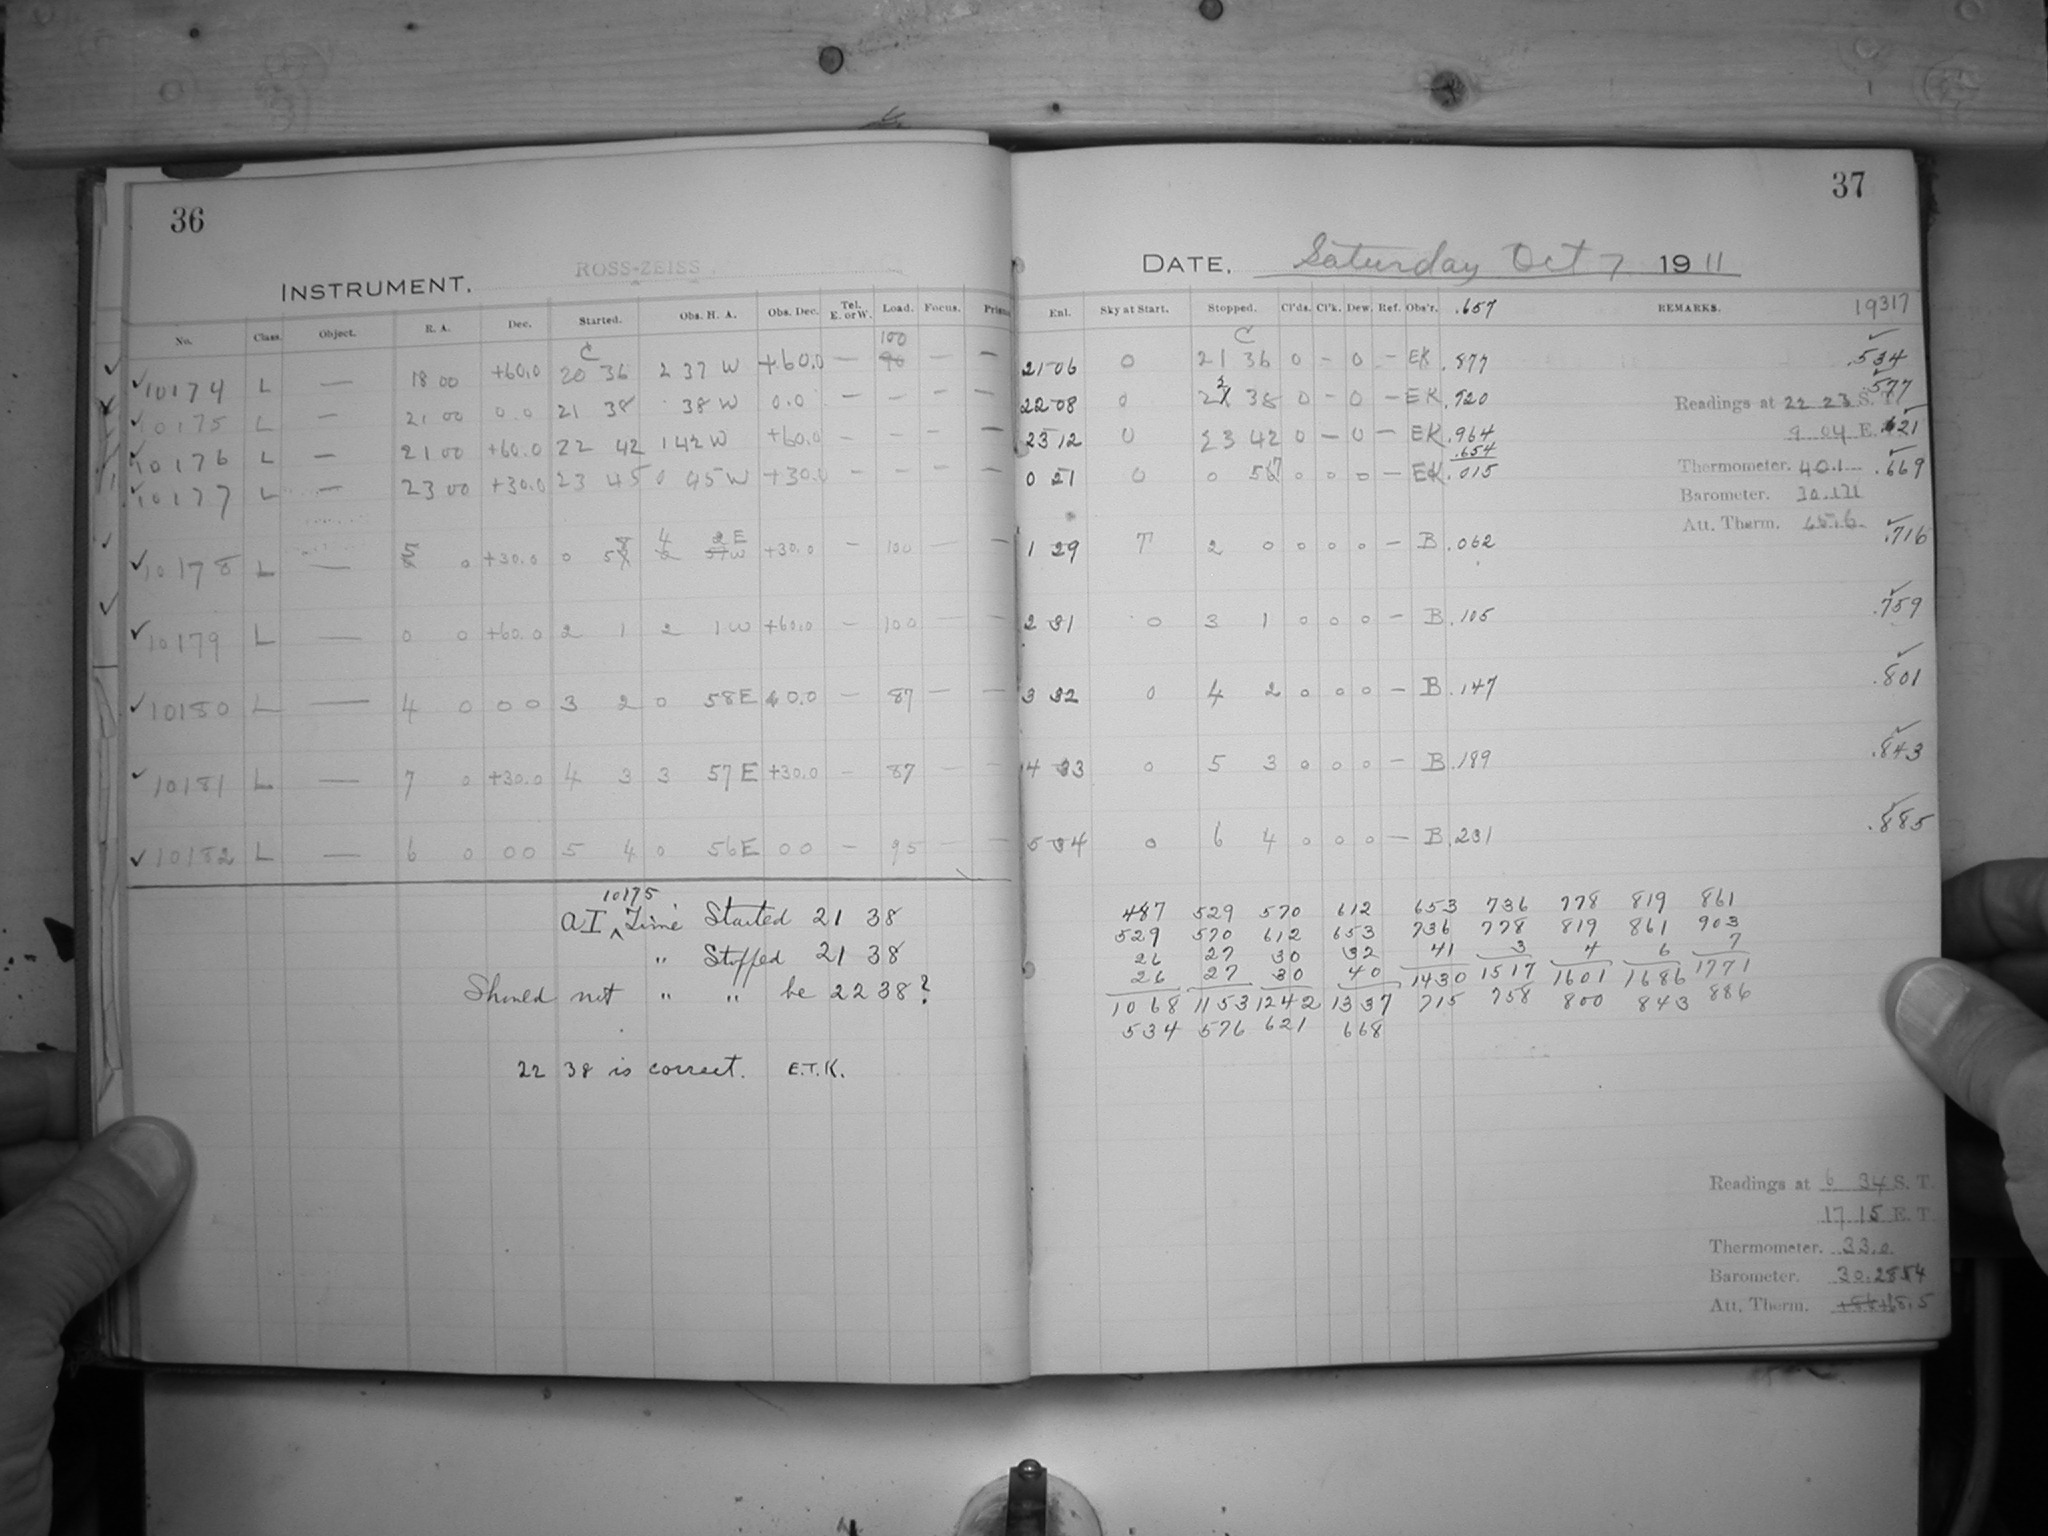 36
INSTRUMENT. ROSS-ZEISS
No. Class. Object. R. A. Dec. Started. Obs. H. A. Obs. Dec. Tel. E. or W. Load. Focus.
100
✓10174 L — 18 00 +60.0 20 36 2 37 W +60.0 — 90 — —
✓10175 L — 21 00 0.0 21 38 38 W 0.0 — — — —
✓10176 L — 21 00 +60.0 22 42 1 42 W +60.0 — — — —
✓10177 L — 23 00 +30.0 23 45 0 45 W +30.0 — — — —
✓10178 L — 5 0 +30.0 0 58 4 2 E +30.0 — 100 — —
✓10179 L — 0 0 +60.0 2 1 2 1 W +60.0 — 100 — —
✓10180 L — 4 0 0 0 3 2 0 58 E 0.0 — 87 — —
✓10181 L — 7 0 +30.0 4 3 3 57 E +30.0 — 87 — —
✓10182 L — 6 0 0 0 5 4 0 56 E 0 0 — 95 — —
10175
AI ^ Time Started 21 38
" Stopped 21 38
Should not " " be 22 38?
22 38 is correct. E.T.K.
37
DATE, Saturday Oct 7 1911
Enl. Sky at Start. Stopped. Cl'ds. Cl'k. Dew. Ref. Obs'r. .657 REMARKS. 19317
21 06 0 21 36 0 — 0 — EK .877 .534
22 08 0 22 38 0 — 0 — EK .920 .577
Readings at 22 23 S. T.
23 12 0 23 42 0 — 0 — EK .964 .621
9 04 E.
.654
0 21 0 0 57 0 0 0 — EK .015 .669
Thermometer. 40.1
Barometer. 30.171
Att. Therm. 65.6
1 29 T 2 0 0 0 0 — B .062 .716
2 31 0 3 1 0 0 0 — B .105 .759
3 32 0 4 2 0 0 0 — B .147 .801
4 33 0 5 3 0 0 0 — B .189 .843
5 34 0 6 4 0 0 0 — B .231 .885
487 529 570 612 653 736 778 819 861
529 570 612 653 736 778 819 861 903
26 27 30 32 41 3 4 6 7
26 27 30 40 1430 1517 1601 1686 1771
1068 1153 1242 1337 715 758 800 843 886
534 576 621 668
Readings at 6 34 S. T.
17 15 E. T.
Thermometer. 33.0
Barometer.
Att. Therm.